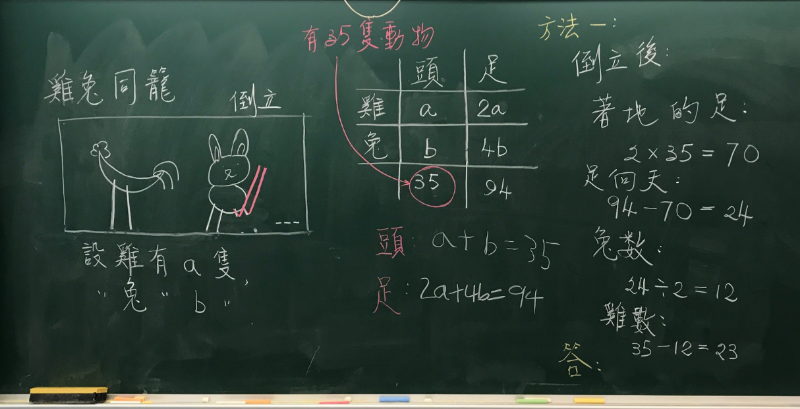 雞兔同籠
倒立
設雞有a隻,
"兔" b "
有35隻動物
頭 足
雞 a 2a
兔 b 4b
35 94
頭: a+b=35
足: 2a+4b=94
方法一:
倒立後:
著地的足:
2×35=70
足向天:
94-70=24
兔数:
24÷2=12
雞數:
35-12=23
答: